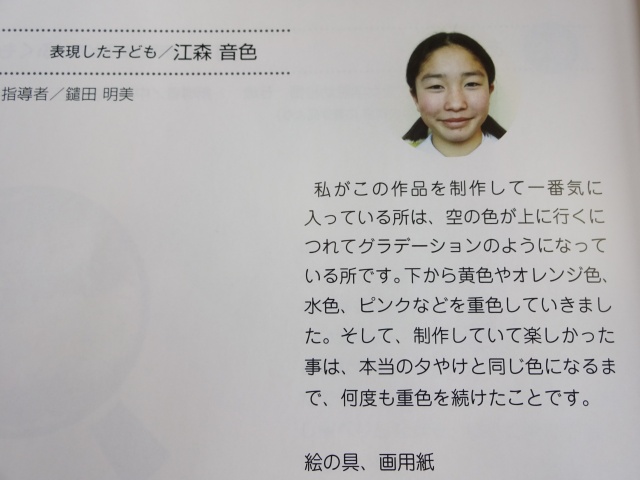 表現した子ども／江森 音色
指導者／鑓田 明美
私がこの作品を制作して一番気に
入っている所は、空の色が上に行くに
つれてグラデーションのようになって
いる所です。下から黄色やオレンジ色、
水色、ピンクなどを重色していきまし
た。そして、制作していて楽しかった
事は、本当の夕やけと同じ色になるま
で、何度も重色を続けたことです。
絵の具、画用紙